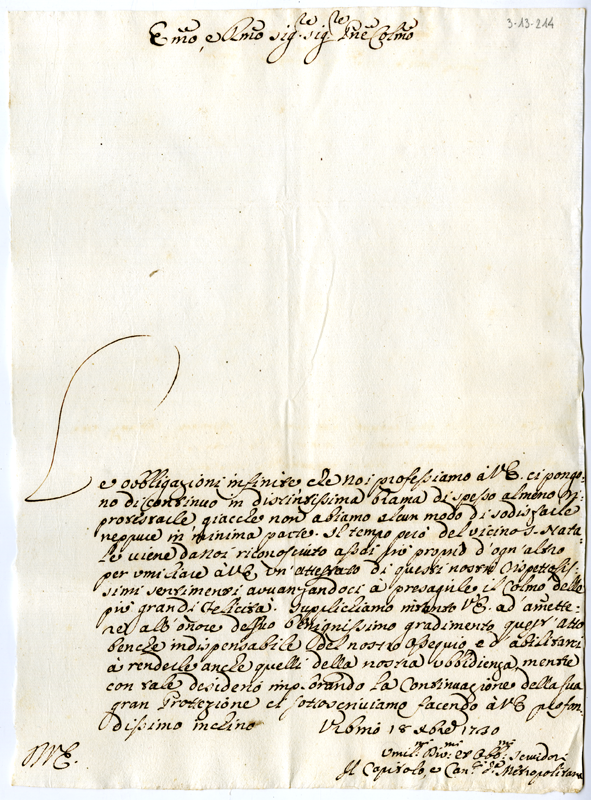 3-13-214
Emo, e Rmo Sig.re Sig.re Pne Colmo
Le obbligazioni infinite che noi professiamo à V.E. ci pongo,
no di continuo in distintissima brama di spesso almeno
protestarle, giacche non abiamo alcun modo di sodisfarle
neppure in minima parte. Il tempo però del vicino S. Nata,
le viene da noi riconosciuto assai più proprio d'ogn'altro
per umiliare à V.E. un'attestato di questi nostri rispettosis,
simi sentimenti avvanzandoci à presagirle il Colmo delle
più grandi felicità. Supplichiamo intanto V.E. ad amette,
re all'onore del suo benignissimo gradimento quest'atto
benche indispensabile del nostro Ossequio, e d'abilitarci
à renderle anche quelli della nostra ubbidienza, mentre
con tale desiderio implorando la Continuazione della sua
gran Protezione ci sottoscriviamo facendo à V.E. profon,
dissimo inchino Urbino 18 Xbre 1740
V.E.
Umil.mi Div.mi et Obb.mi Servidori
Il Capitolo, e Can.ci d. Metropolitana